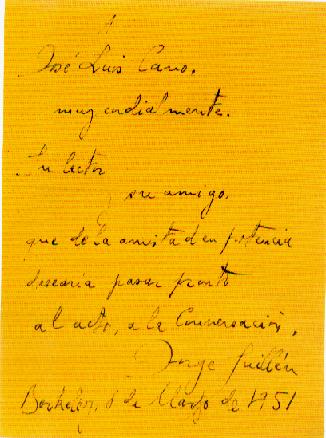 A
José Luis Cano,
muy cordialmente.
Su lector
y su amigo,
que de la amistad en potencia
desearía pasar pronto
al acto, a la Conversación,
Jorge Guillén
Berkeley, de Marzo de 1951